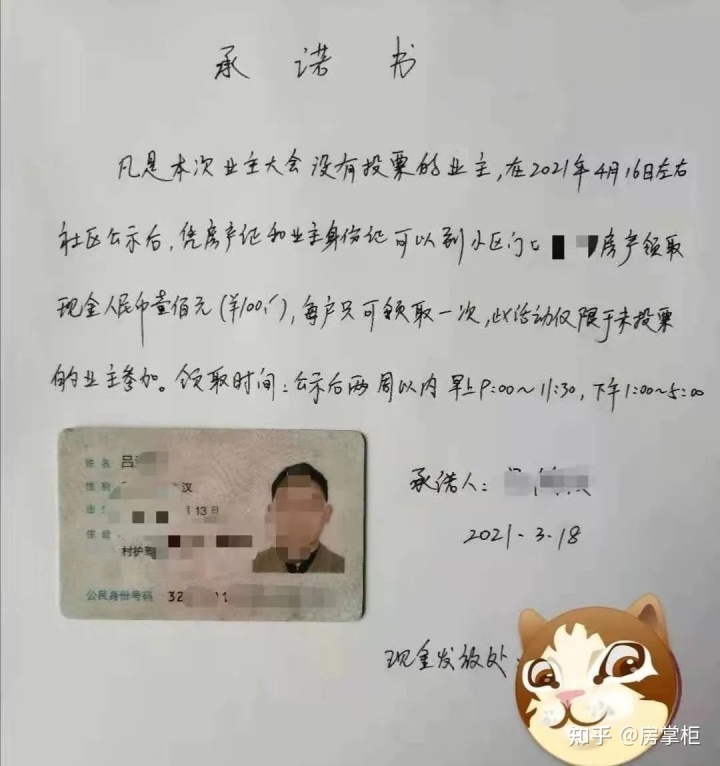 承诺书
凡是本次业主大会没有投票的业主，在2021年4月16日左右
社区公示后，凭房产证和业主身份证可以到小区门 房产领取
现金人民币壹佰元（¥100/），每户只可领取一次，此活动仅限于未投票
的业主参加。领取时间：公示后两周以内 早上9:00～11:30，下午1:00～5:00
姓名 吕
性别 汉
出 月13日
住址
村护
公民身份号码 32
承诺人：
2021.3.18
现金发放处：
知乎 @房掌柜